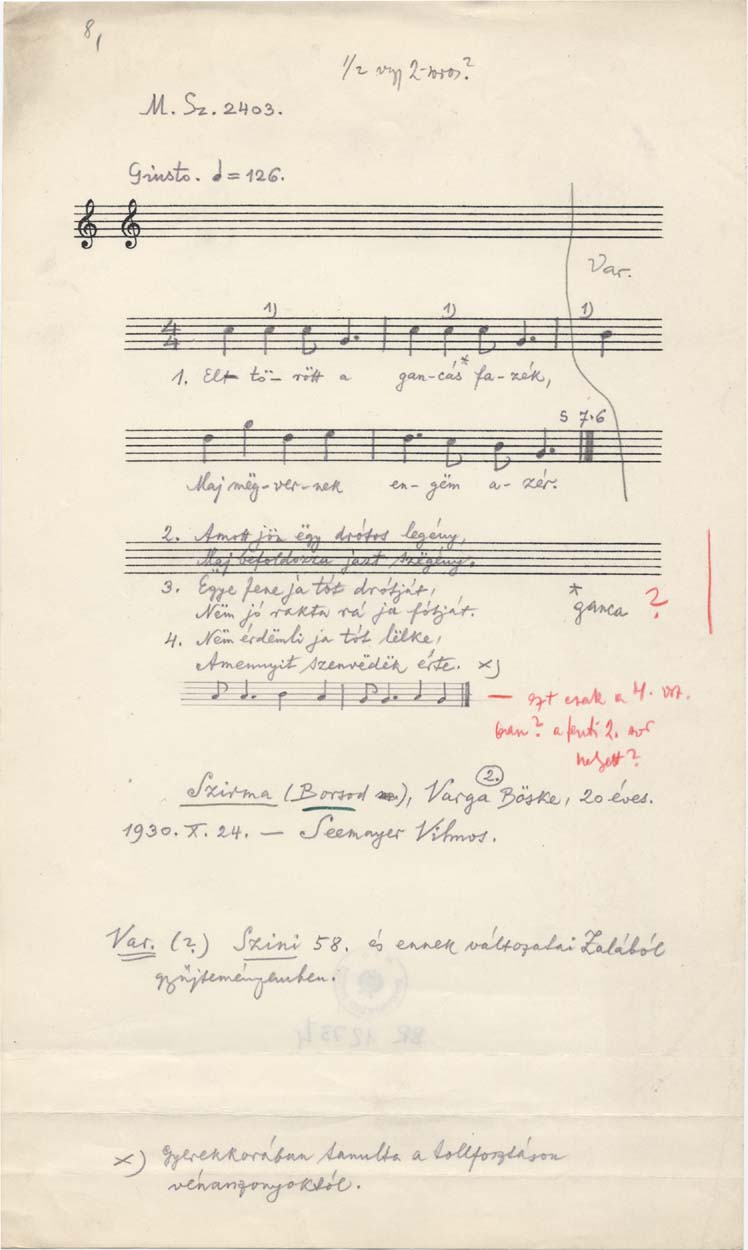 8,
1/2 vagy 2-soros?
M. Sz. 2403.
Giusto. = 126.
Var.
4
4
1) 1) 1)
1. Elt- tö- rött a gan-cás* fa-zék,
5 7·6
Maj mëg-ver-nek en-gëm a-zér.
2. Amott jön ëgy drótos legény,
Maj befoldozza jazt szëgény.
3. Ëgye fene ja tót drótját,
Nëm jó rakta rá ja fótját.
* ganca ?
4. Nëm érdëmli ja tót lëlke,
Amennyit szenvëdëk érte. x)
— ezt csak a 4. vsz.
ban? a fenti 2. sor
helyett?
2.
Szirma (Borsod), Varga Böske, 20 éves.
1930. X. 24. — Seemayer Vilmos.
Var. (?) Szini 58. és ennek változatai Zalából
gyűjteményemben.
BR 12734
x) Gyerekkorában tanulta a tollfosztáson
vénasszonyoktól.